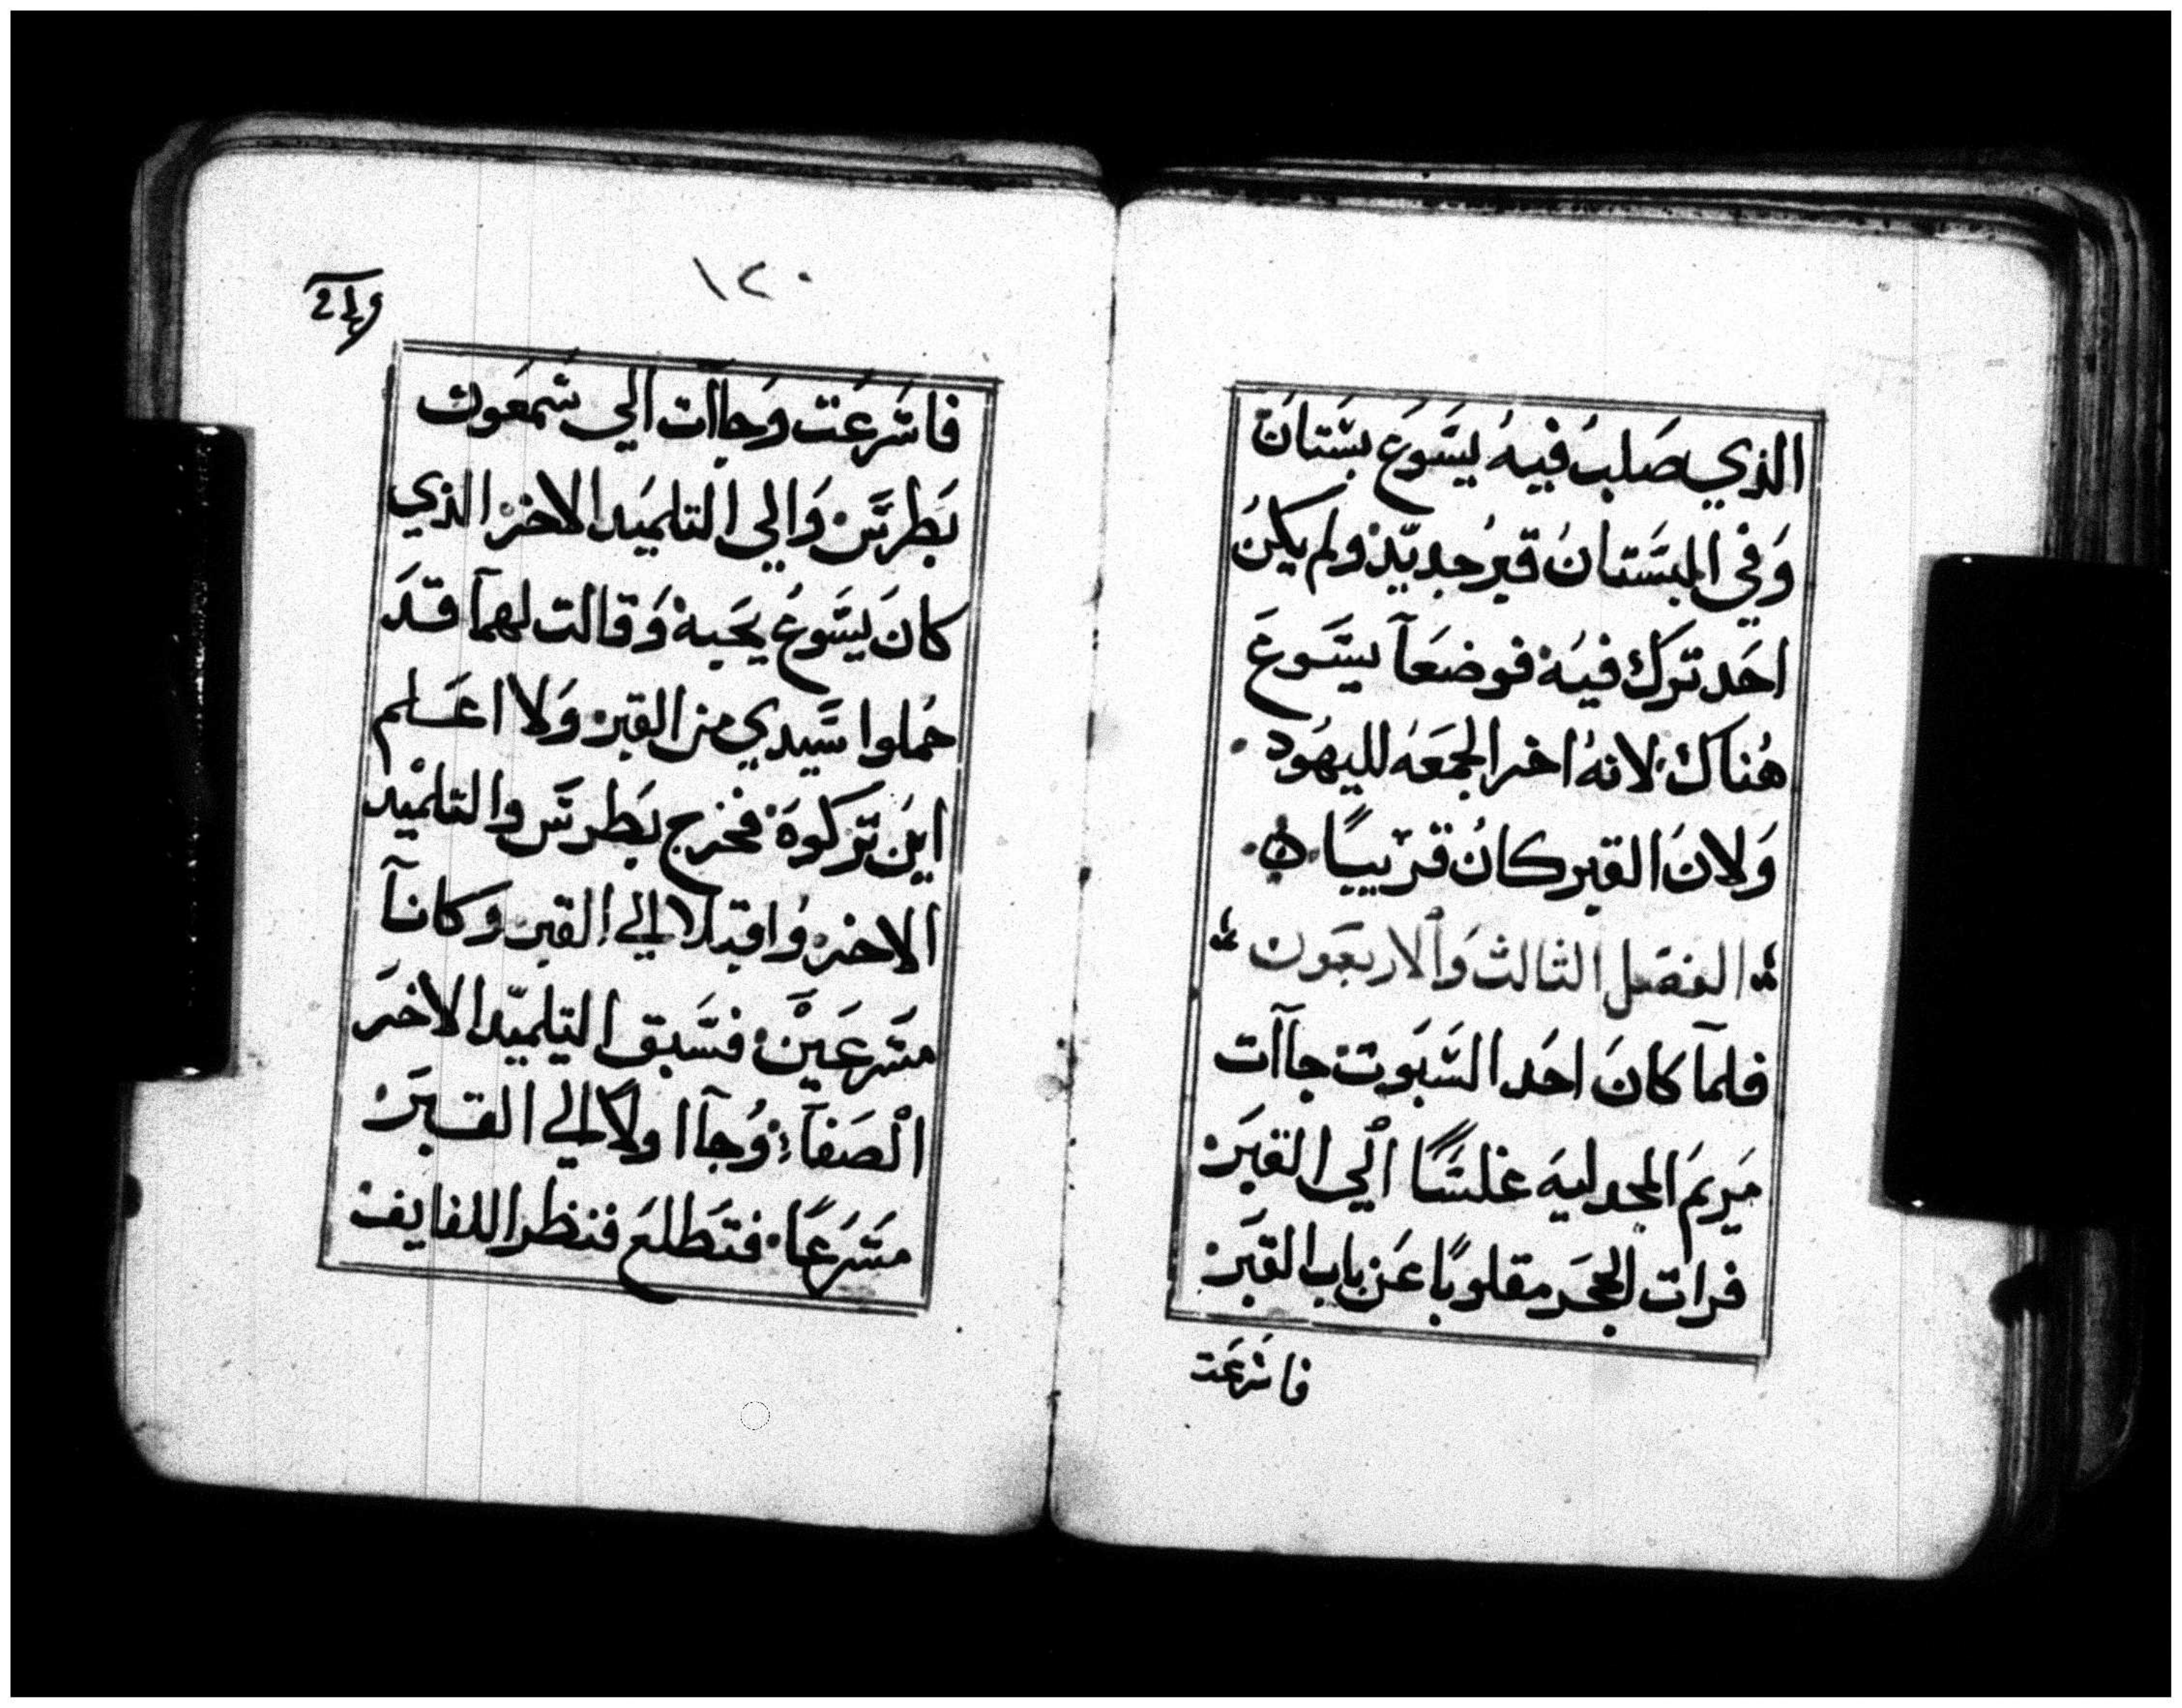 الذي صَلبَ فيهُ يسَوَع بسَتانَ
وَفي البسَتانُ قبرُ جديدٌ ولم يكنُ
احَد ترَك فيهُ فوضعَآ يسَوعَ
هُناك لانهُ اخر الجمَعَه لليهُود
وَلانَ القبر كانُ قرَيبًا
الفصَل الثالث وَالاربعَون
فلمآ كانَ احَد السَّبَوت جاآت
مَريمَ المجدليهَ غلسًَا الي القبَر
فرات الحجَر مقلوبًا عَن باب القبَر
فاسَرعَت
١٢٠
فاسَرعَت وَجاآت الي سَمعَون
بَطرسَ وَالي التلميَد الاخر الذي
كانَ يسَوعُ يحَبهُ وَقالت لهمآ قدَ
حمُلوا سَيدي من القبر وَلا اعَلم
اينَ ترَكوهَ فخرج بَطرسَ والتلميْد
الاخر وُاقبلا الي القبر وَكانآ
مسَرعَينْ فسَبق التلميّد الاخَر
الْصَفآ وُجآ اولاً الي القبَر
مسَرَعًا فتَطلعَ فنظر اللفايف